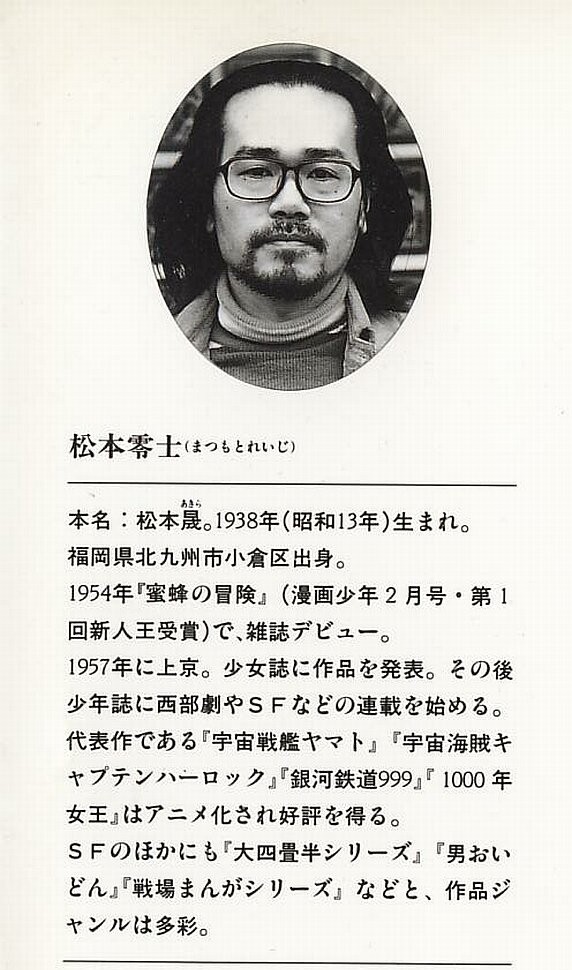 松本零士(まつもとれいじ)
本名：松本晟。1938年(昭和13年)生まれ。
あきら
福岡県北九州市小倉区出身。
1954年『蜜蜂の冒険』(漫画少年2月号・第1
回新人王受賞)で、雑誌デビュー。
1957年に上京。少女誌に作品を発表。その後
少年誌に西部劇やＳＦなどの連載を始める。
代表作である『宇宙戦艦ヤマト』『宇宙海賊キ
ャプテンハーロック』『銀河鉄道999』『1000年
女王』はアニメ化され好評を得る。
ＳＦのほかにも『大四畳半シリーズ』『男おい
どん』『戦場まんがシリーズ』などと、作品ジ
ャンルは多彩。